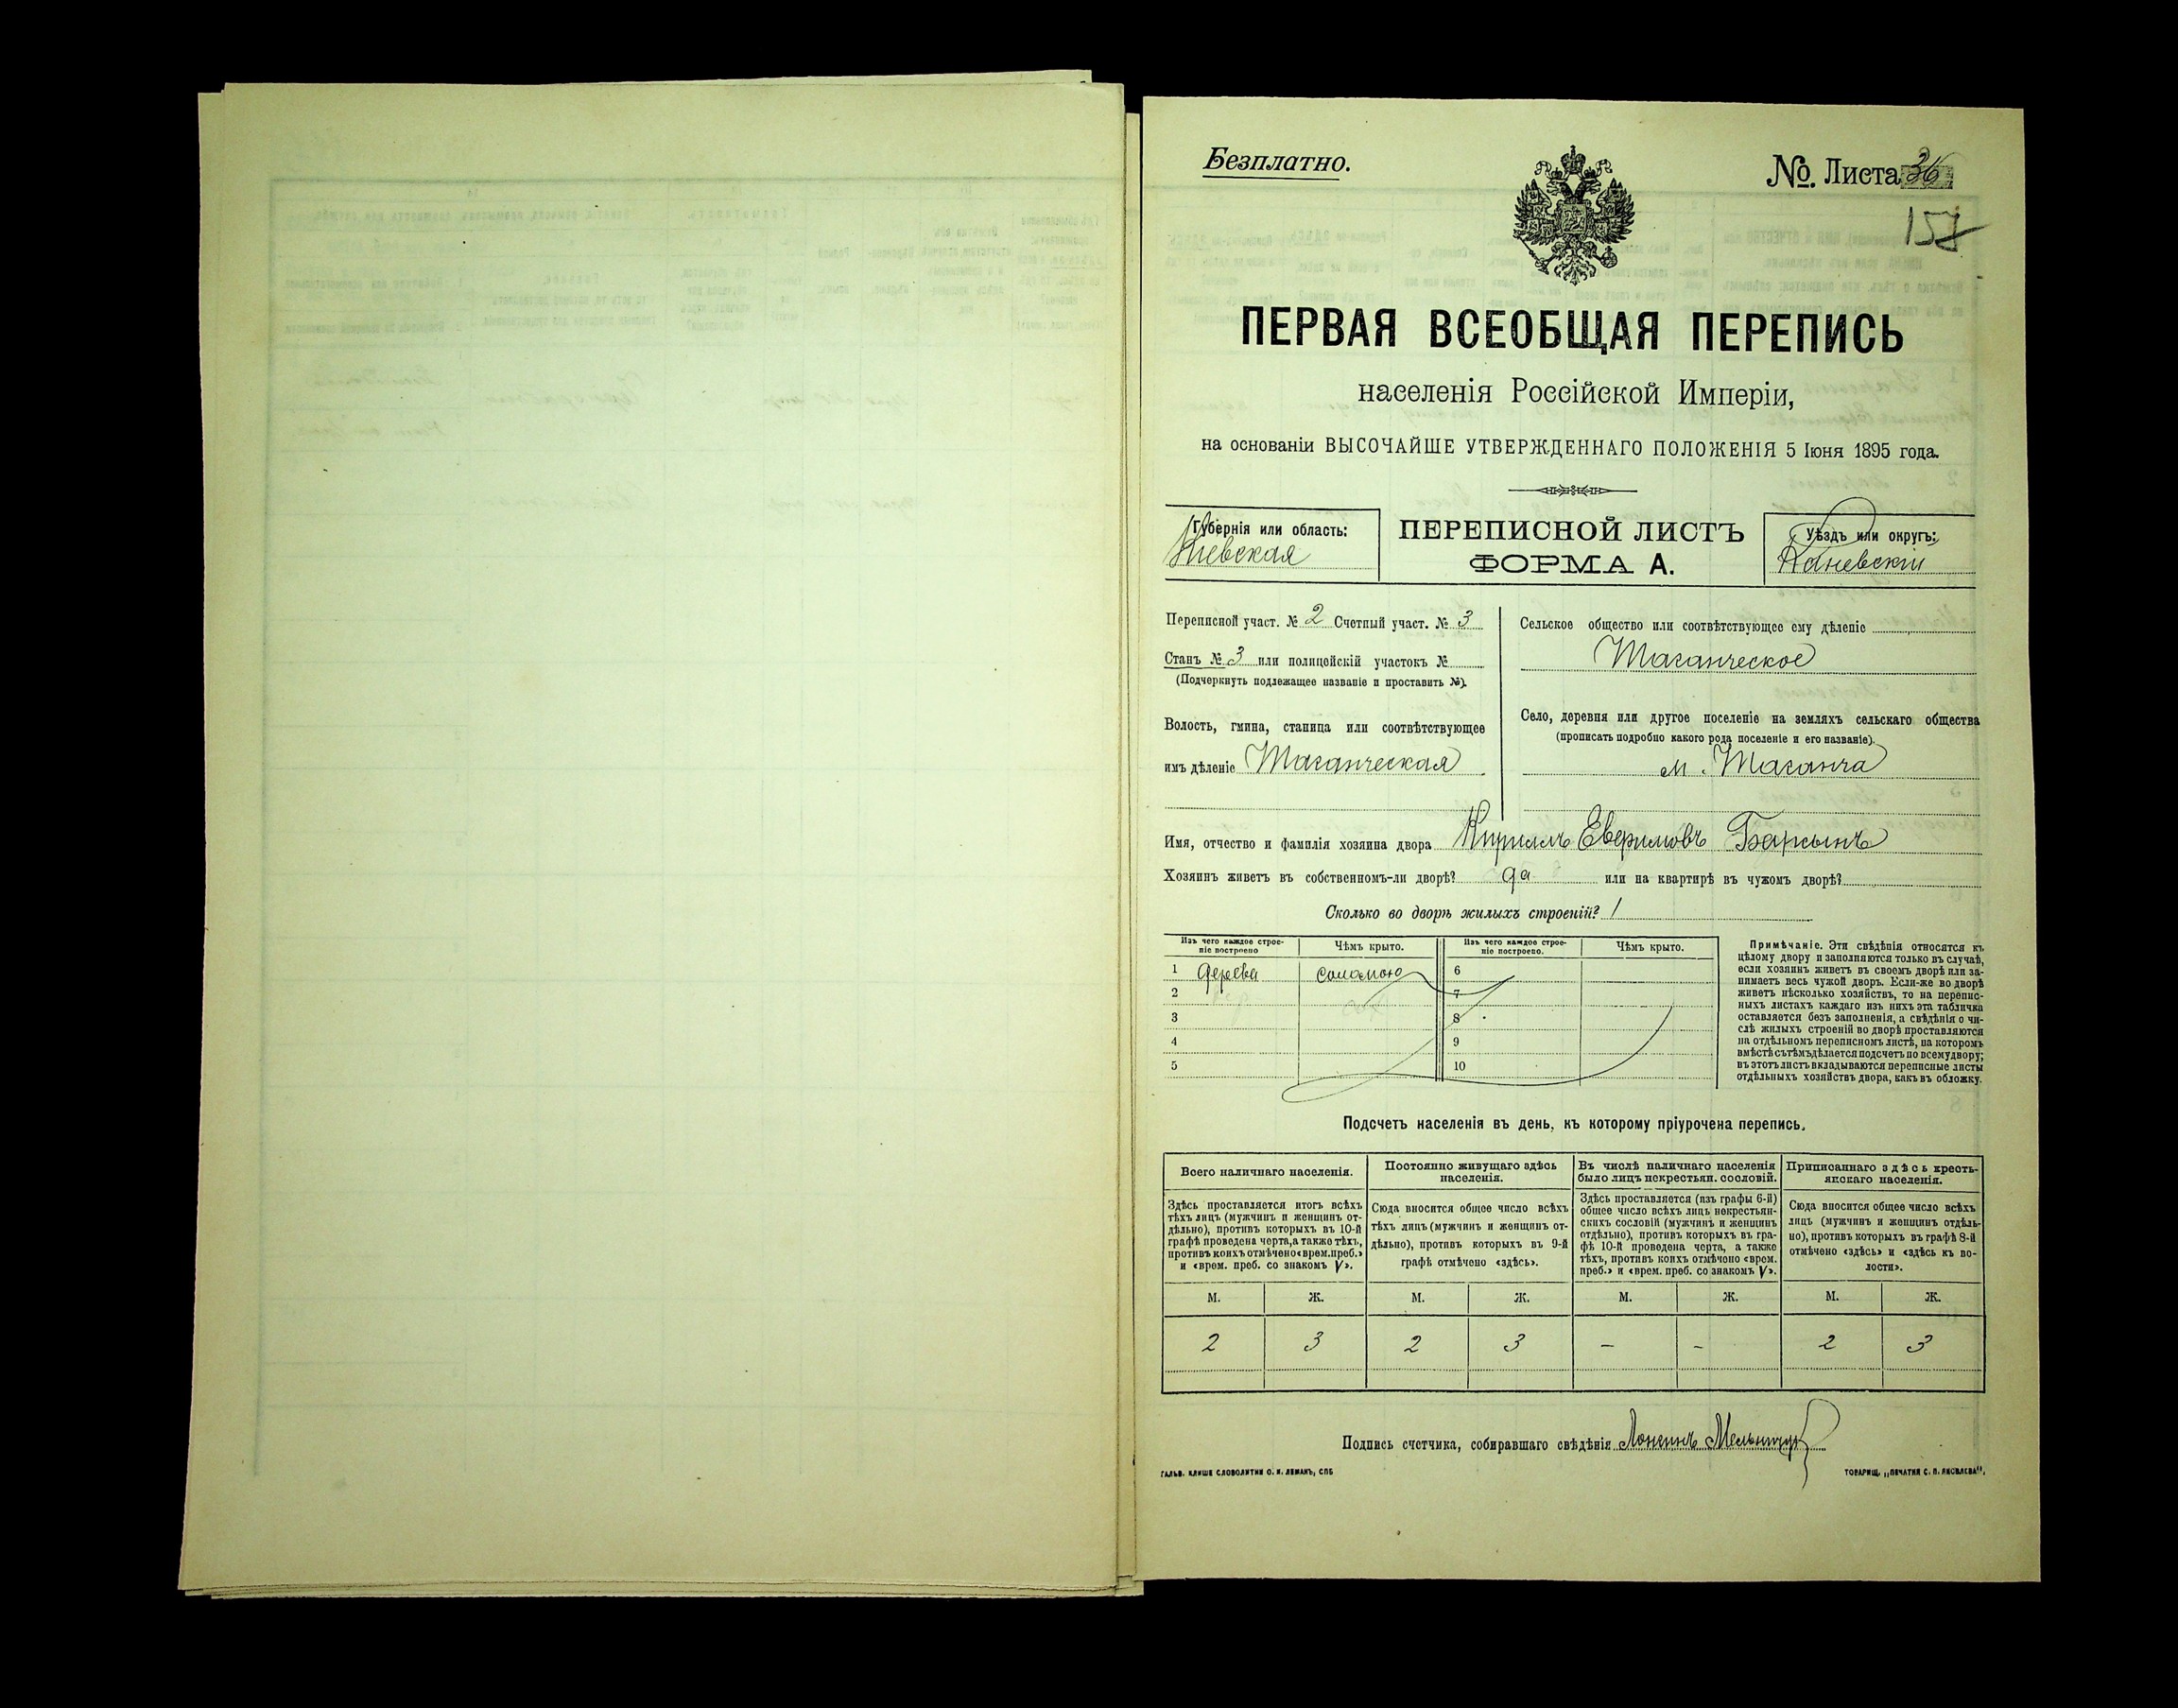 Безплатно.
№. Листа 36
157
ПЕРВАЯ ВСЕОБЩАЯ ПЕРЕПИСЬ
населенія Россійской Имперіи,
на основаніи ВЫСОЧАЙШЕ УТВЕРЖДЕННАГО ПОЛОЖЕНІЯ 5 Іюня 1895 года.
Губернія или область:
Кіевская
ПЕРЕПИСНОЙ ЛИСТЪ
ФОРМА А.
Уѣздъ или округъ:
Каневскій
Переписной участ. № 2 Счетный участ. № 3
Станъ № 3 или полицейскій участокъ №
(Подчеркнуть подлежащее названіе и проставить №).
Волость, гмина, станица или соотвѣтствующее
имъ дѣленіе Таганческая
Сельское общество или соотвѣтствующее ему дѣленіе
Таганческое
Село, деревня или другое поселеніе на земляхъ сельскаго общества
(прописать подробно какого рода поселеніе и его названіе).
м. Таганча
Имя, отчество и фамилія хозяина двора Кириллъ Евфимовъ
Хозяинъ живетъ въ собственномъ-ли дворѣ? да или на квартирѣ въ чужомъ дворѣ?
Сколько во дворѣ жилыхъ строеній? 1
Изъ чего каждое строе-
ніе построено
Чѣмъ крыто.
Изъ чего каждое строе-
ніе построено.
Чѣмъ крыто.
1 дерева соломою 6
2 7
3 8
4 9
5 10
Примѣчаніе. Эти свѣдѣнія относятся къ
цѣлому двору и заполняются только въ случаѣ,
если хозяинъ живетъ въ своемъ дворѣ или за-
нимаетъ весь чужой дворъ. Если-же во дворѣ
живетъ нѣсколько хозяйствъ, то на перепис-
ныхъ листахъ каждаго изъ нихъ эта табличка
оставляется безъ заполненія, а свѣдѣнія о чи-
слѣ жилыхъ строеній во дворѣ проставляются
на отдѣльномъ переписномъ листѣ, на которомъ
вмѣстѣ съ тѣмъ дѣлается подсчетъ по всему двору;
въ этотъ листъ вкладываются переписные листы
отдѣльныхъ хозяйствъ двора, какъ въ обложку.
Подсчетъ населенія въ день, къ которому пріурочена перепись.
Всего наличнаго населенія.
Здѣсь проставляется итогъ всѣхъ
тѣхъ лицъ (мужчинъ и женщинъ от-
дѣльно), противъ которыхъ въ 10-й
графѣ проведена черта, а также тѣхъ,
противъ коихъ отмѣчено «врем. преб.»
и «врем. преб. со знакомъ V».
Постоянно живущаго здѣсь
населенія.
Сюда вносится общее число всѣхъ
тѣхъ лицъ (мужчинъ и женщинъ от-
дѣльно), противъ которыхъ въ 9-й
графѣ отмѣчено «здѣсь».
Въ числѣ наличнаго населенія
было лицъ некрестьян. сословій.
Здѣсь проставляется (изъ графы 6-й)
общее число всѣхъ лицъ некрестьян-
скихъ сословій (мужчинъ и женщинъ
отдѣльно), противъ которыхъ въ гра-
фѣ 10-й проведена черта, а также
тѣхъ, противъ коихъ отмѣчено «врем.
преб.» и «врем. преб. со знакомъ V».
Приписаннаго здѣсь кресть-
янскаго населенія.
Сюда вносится общее число всѣхъ
лицъ (мужчинъ и женщинъ отдѣль-
но), противъ которыхъ въ графѣ 8-й
отмѣчено «здѣсь» и «здѣсь къ во-
лости».
М. Ж. М. Ж. М. Ж. М. Ж.
2 3 2 3 - - 2 3
Подпись счетчика, собиравшаго свѣдѣнія Лонгинъ Мельничук
ГАЛЬВ. КЛИШЕ СЛОВОЛИТНИ О. И. ЛЕМАНЪ, СПБ
ТОВАРИЩ. „ПЕЧАТНЯ С. П. ЯКОВЛЕВА".